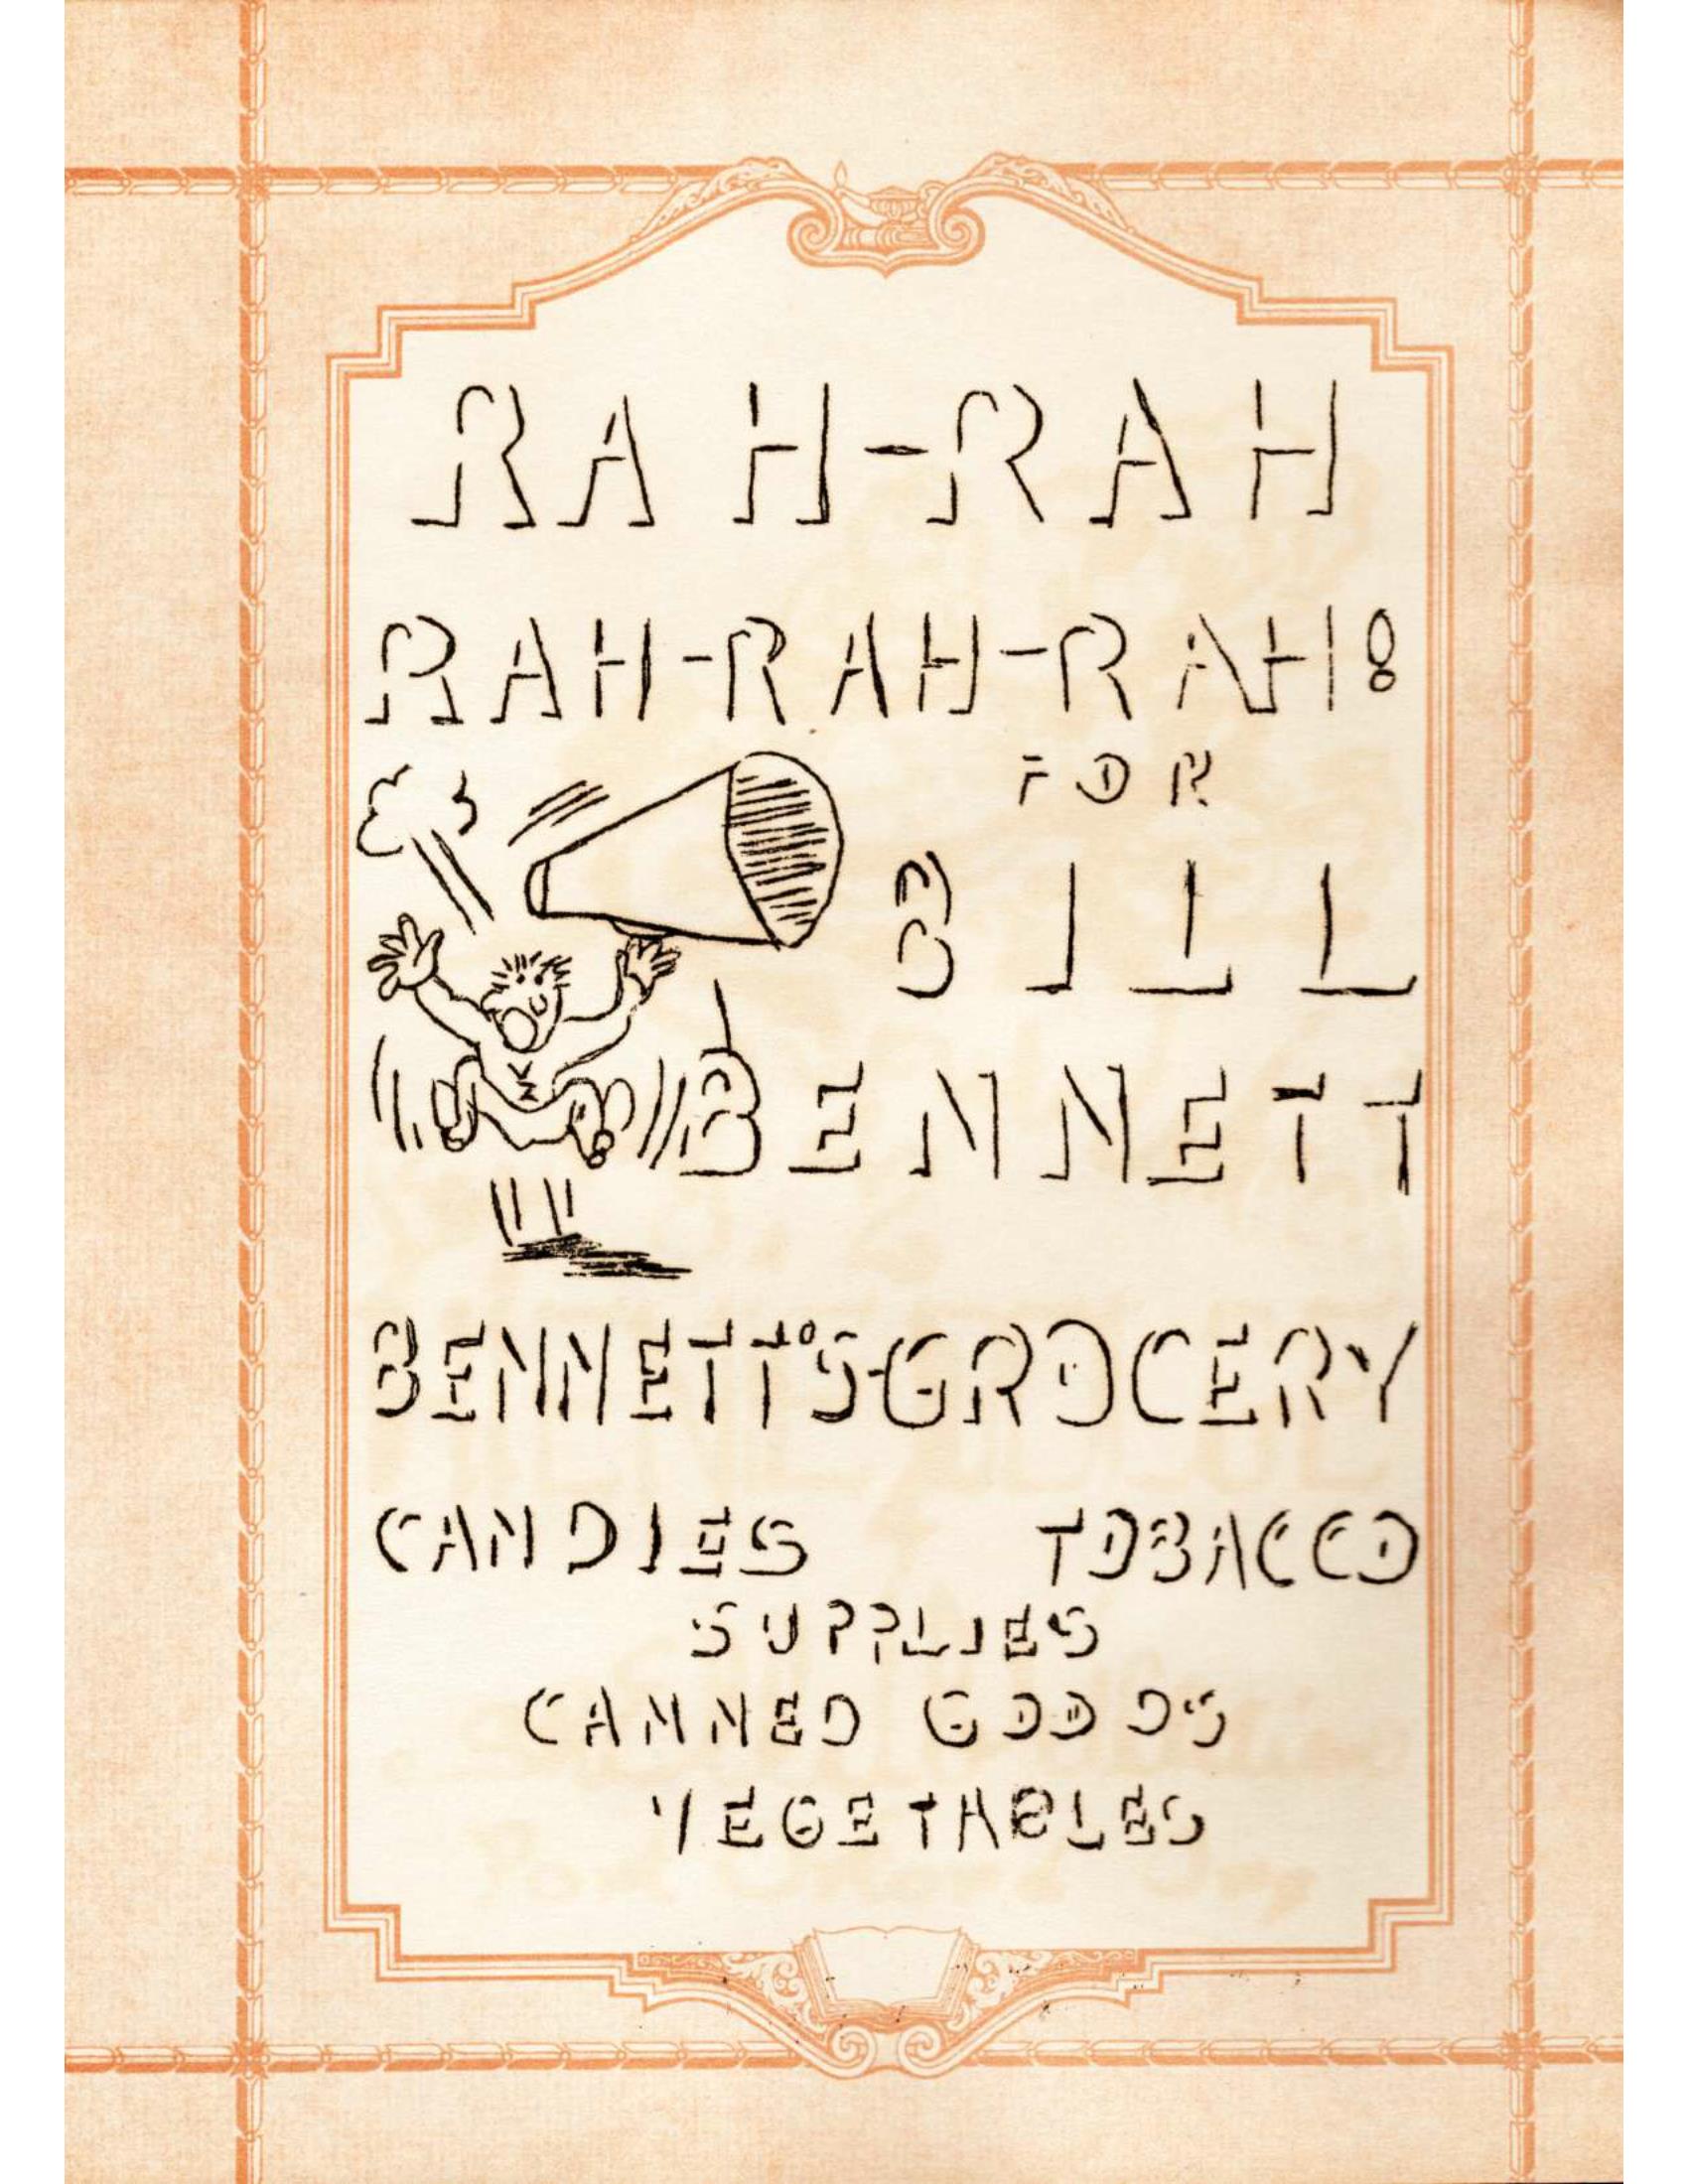 RAH-RAH
RAH-RAH-RAH!
FOR
BILL
BENNETT
BENNETT'S-GROCERY
CANDIES TOBACCO
SUPPLIES
CANNED GOODS
VEGETABLES